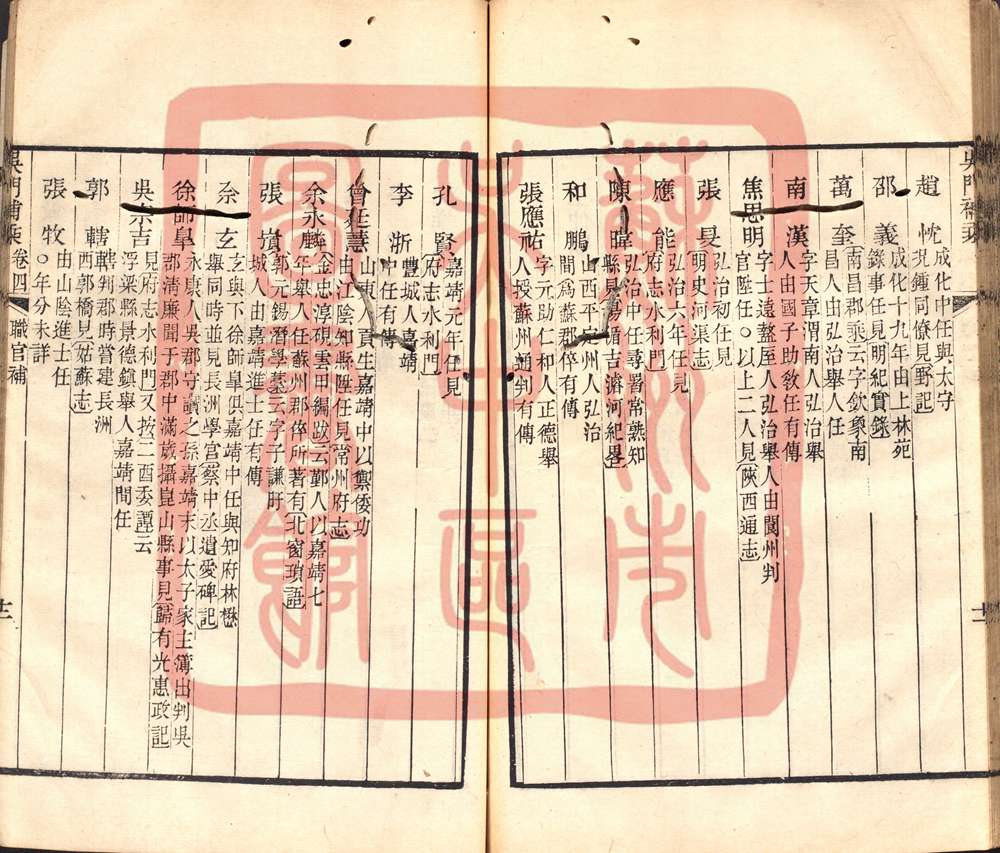 趙忱
成化中任與太守
況鍾同僚見野記
邵義
成化十九年由上林苑
錄事任見明紀實錄
萬奎
南昌郡乘云字欽象南
昌人由弘治舉人任
南漢
字天章渭南人弘治舉
人由國子助敎任有傳
焦思明
字士遠盩厔人弘治舉人由閬州判
官陞任〇以上二人見陝西通志
張旻
弘治初任見
明史河渠志
應能
弘治六年任見
府志水利門
陳暐
弘治中任尋署常熟知
縣見
吉濬河紀畧
和鵬
山西平定州人弘治
間爲蘇郡倅有傳
張應祐
字元助仁和人正德舉
人授蘇州通判有傳
吳門補乘
卷四
職官補
孔賢
嘉靖元年任見
府志水利門
李浙
豐城人嘉靖
中任有傳
曾在慧
山東人貢生嘉靖中以禦倭功
由江陰知縣陞任見常州府志
余永麟
金忠淳硯雲甲編跋云鄞人以嘉靖七
年舉人任蘇州郡倅所著有北窗瑣語
張寊
郭元錫潛學墓云字子謙盱
城人由嘉靖進士任有傳
佘玄
玄與下徐師皐俱嘉靖中任與知府林懋
舉同時並見長洲學官蔡中丞遺愛碑記
徐師皐
永康人吳郡守讚之孫嘉靖末以太子家主簿出判吳
郡清廉聞于郡中滿歲攝崑山縣事見歸有光惠政記
吳宗吉
見府志水利門又按二酉委譚云
浮梁縣景德鎭舉人嘉靖間任
郭轄
轄判郡時嘗建長洲
西郭橋見姑蘇志
張牧
由山陰進士任
〇年分未詳
蘇州市
吳中區
圖書館